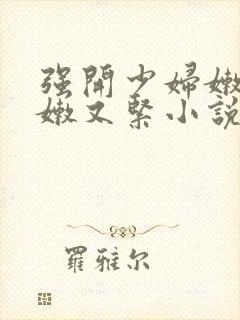 强開少婦嫩
嫩又緊小說
羅雅尔